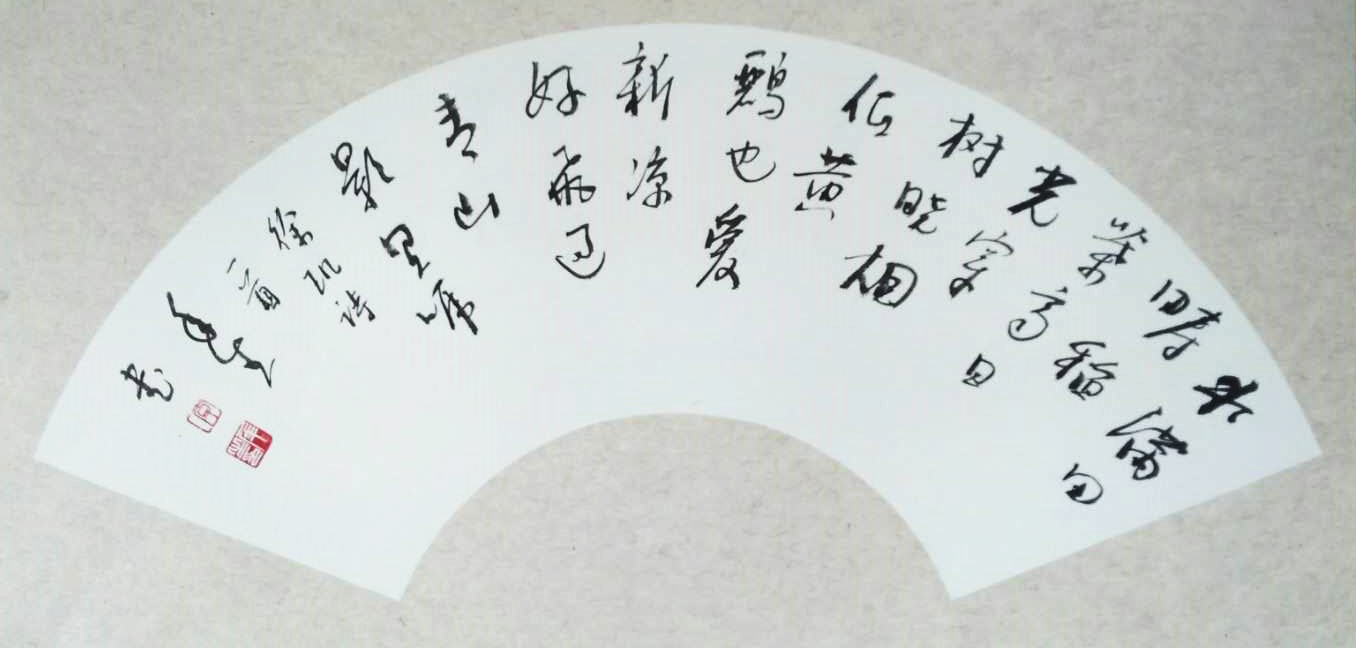 水满田
畴稻
葉齐日
光穿
树晓烟
低黄
鶯也爱
新凉
好飛过
青山
影里啼
徐玑诗
一首
书